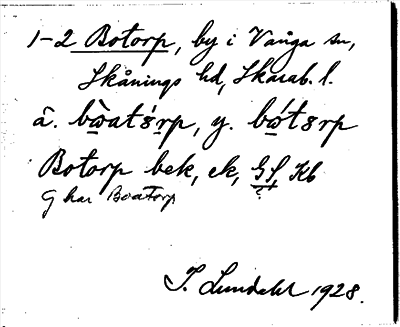 1-2 Botorp, by i Vånga sn,
Skånings hd, Skarab. l.
â. bωatśrp, y. bωtsrp
Botorp bek, ek, GS, Kb
?
G har Boatorp
I. Lundahl 1928.